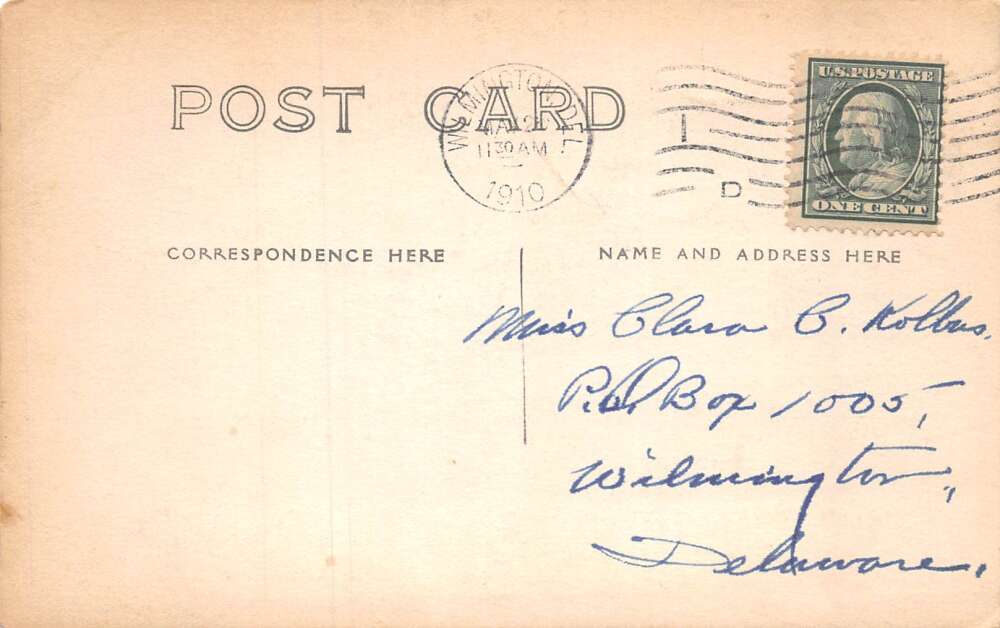 POST CARD
WILMINGTON, DEL
11 30 AM
1910
1
D
U.S. POSTAGE
ONE CENT
CORRESPONDENCE HERE
NAME AND ADDRESS HERE
Miss Clara C. Kolbus,
P.O. Box 1005,
Wilmington,
Delaware.